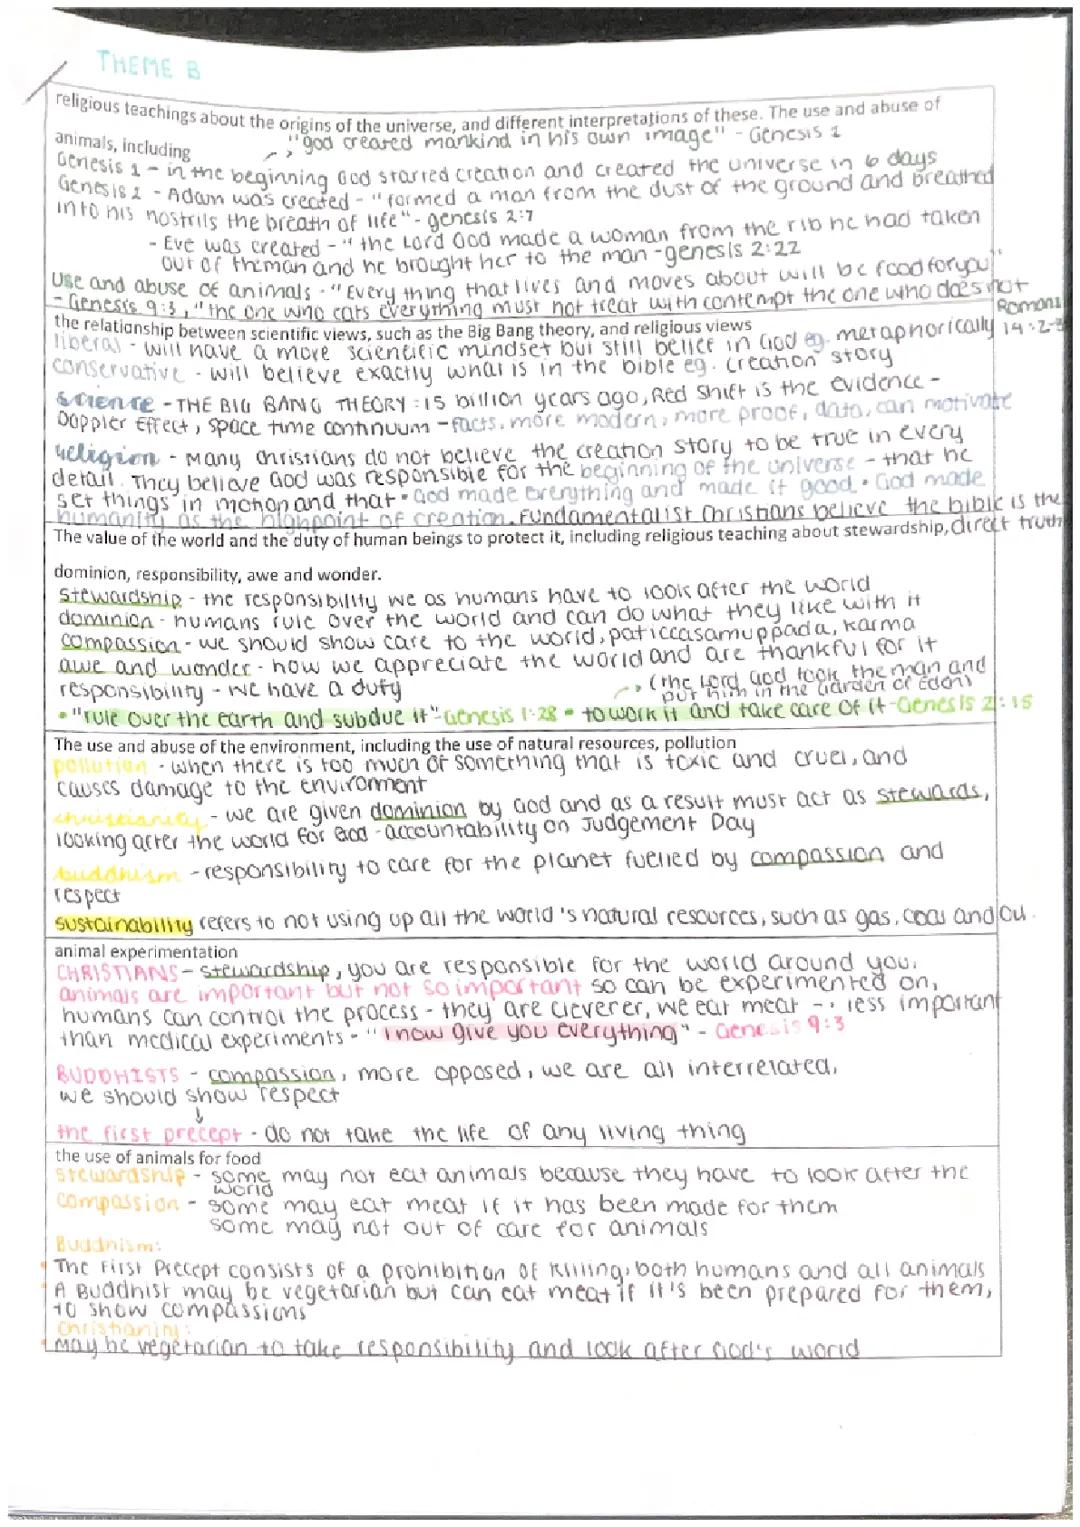 THEME B
religious teachings about the origins of the universe, and different interpretations of these. The use and abuse of
animals, including
"god created mankind in his own image" - Genesis 1
Genesis 1 - in the beginning God started creation and created the universe in 6 days
Genesis 2 - Adam was created - "formed a man from the dust of the ground and breathed
into his nostrils the breath of life" - genesis 2:7
- Eve was created - "the Lord God made a woman from the rib he had taken
out of the man and he brought her to the man - genesis 2:22
Use and abuse of animals - "Everything that lives and moves about will be food for you"
- Genesis 9:3, "the one who eats everything must not treat with contempt the one who does not
Romans
14:2-3
the relationship between scientific views, such as the Big Bang theory, and religious views
liberal - will have a more scientific mindset but still belief in God eg. metaphorically
conservative - will believe exactly what is in the bible eg. creation story
science - THE BIG BANG THEORY : 15 billion years ago, Red Shift is the evidence -
Doppler Effect, space time continuum - facts, more modern, more proof, data, can motivate
religion - Many christians do not believe the creation story to be true in every
detail. They believe God was responsible for the beginning of the universe - that he
set things in motion and that • God made everything and made it good • God made
humanity as the highpoint of creation. Fundamentalist Christians believe the bible is the
direct truth
The value of the world and the duty of human beings to protect it, including religious teaching about stewardship,
dominion, responsibility, awe and wonder.
Stewardship - the responsibility we as humans have to look after the world
dominion - humans rule over the world and can do what they like with it
compassion - we should show care to the world, paticcasamuppada, karma
awe and wonder - how we appreciate the world and are thankful for it
responsibility - we have a duty
(the Lord God took the man and
put him in the Garden of Eden)
• "rule over the earth and subdue it" - Genesis 1:28 • to work it and take care of it - Genesis 2:15
The use and abuse of the environment, including the use of natural resources, pollution
pollution - when there is too much of something that is toxic and cruel, and
causes damage to the environment
christianity - we are given dominion by God and as a result must act as stewards,
looking after the world for God - accountability on Judgement Day
buddhism - responsibility to care for the planet fuelled by compassion and
respect
sustainability refers to not using up all the world's natural resources, such as gas, coal and oil.
animal experimentation
CHRISTIANS - stewardship, you are responsible for the world around you,
animals are important but not so important so can be experimented on,
humans can control the process - they are cleverer, we eat meat -: less important
than medical experiments - "I now give you everything" - Genesis 9:3
BUDDHISTS - compassion, more opposed, we are all interrelated,
we should show respect
↓
the first precept - do not take the life of any living thing
the use of animals for food
stewardship - some may not eat animals because they have to look after the
world
compassion - some may eat meat if it has been made for them
some may not out of care for animals
Buddhism:
• The First Precept consists of a prohibition of killing, both humans and all animals
• A Buddhist may be vegetarian but can eat meat if it's been prepared for them,
to show compassions
Christianity:
• May be vegetarian to take responsibility and look after God's world